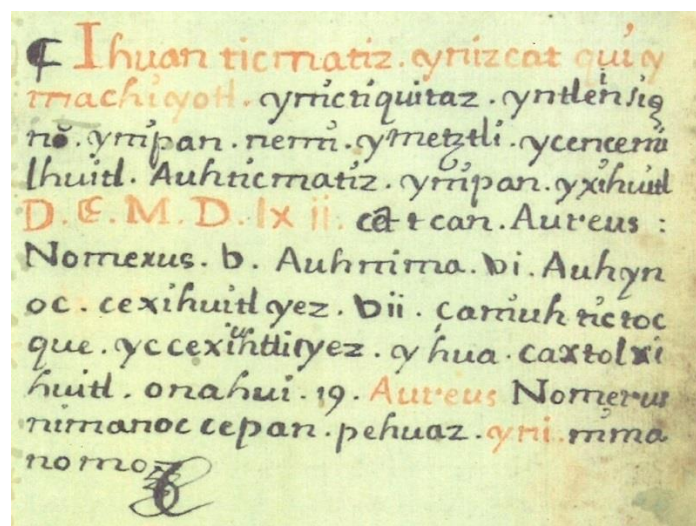 ¶ Ihuan ticmatiz. ynizcat qui y
machiyotl. ynictiquitaz. yntlein sig
nō. ynipan. nemi. ymetztli. ycencemi
lhuitl. Auhticmatiz. ynipan. yxihuitl
D. E. M. D. lx ii. can. Aureus :
Nomerus. b. Auhnima. vi. Auhyn
oc. cexihuitl yez. vii. çaniuh tictoc
que. yccexihuitl yez. y hua. caxtolxi
huitl. onahui. 19. Aureus Nomerus
nimanoc cepan. pehuaz. yni. nima